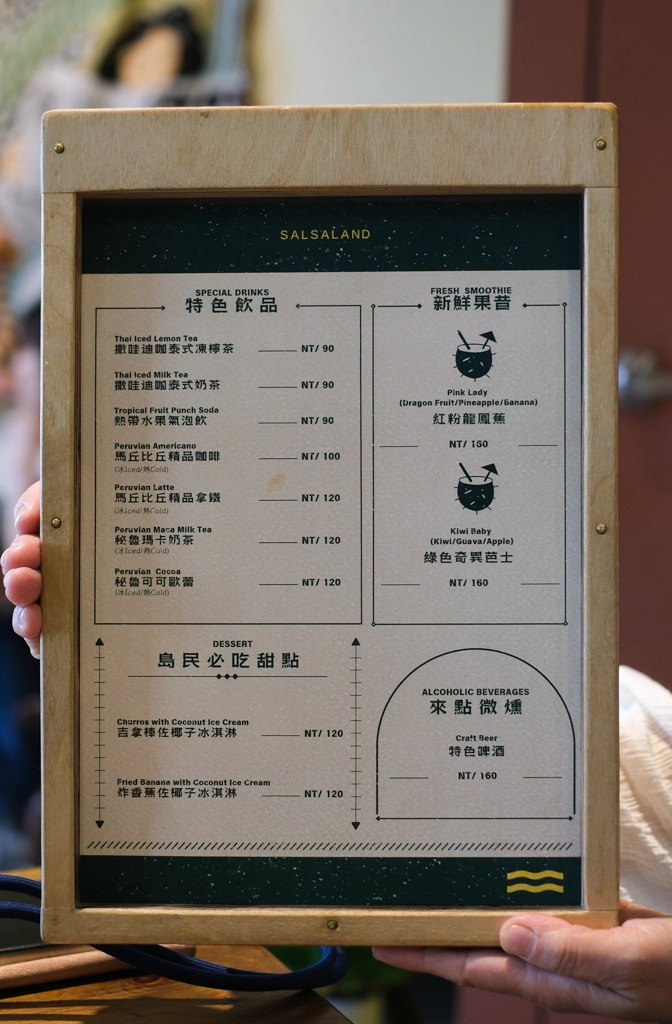 SALSALAND
SPECIAL DRINKS
特色飲品
Thai Iced Lemon Tea
撒哇迪咖泰式凍檸茶 NT/ 90
Thai Iced Milk Tea
撒哇迪咖泰式奶茶 NT/ 90
Tropical Fruit Punch Soda
熱帶水果氣泡飲 NT/ 90
Peruvian Americano
馬丘比丘精品咖啡 NT/ 100
(冰Iced/熱Cold)
Peruvian Latte
馬丘比丘精品拿鐵 NT/ 120
(冰Iced/熱Cold)
Peruvian Maca Milk Tea
秘魯瑪卡奶茶 NT/ 120
(冰Iced/熱Cold)
Peruvian Cocoa
秘魯可可歐蕾 NT/ 120
(冰Iced/熱Cold)
FRESH SMOOTHIE
新鮮果昔
Pink Lady
(Dragon Fruit/Pineapple/Banana)
紅粉龍鳳蕉
NT/ 160
Kiwi Baby
(Kiwi/Guava/Apple)
綠色奇異芭士
NT/ 160
DESSERT
島民必吃甜點
Churros with Coconut Ice Cream
吉拿棒佐椰子冰淇淋 NT/ 120
Fried Banana with Coconut Ice Cream
炸香蕉佐椰子冰淇淋 NT/ 120
ALCOHOLIC BEVERAGES
來點微燻
Craft Beer
特色啤酒
NT/ 160